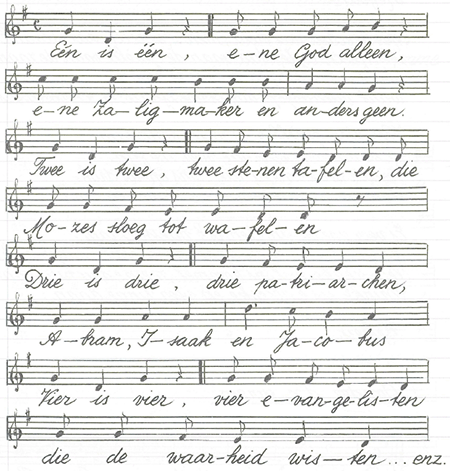 Eén is één, e-ne God alleen,
e-ne Za-lig-ma-ker en an-ders geen.
Twee is twee, twee ste-nen ta-fel-en, die
Mo-zes sloeg tot wa-fel-en
Drie is drie, drie pa-tri-ar-chen,
A-bram, I-saak en Ja-co-bus
Vier is vier, vier e-van-ge-lis-ten
die de waar-heid wis-ten... enz.